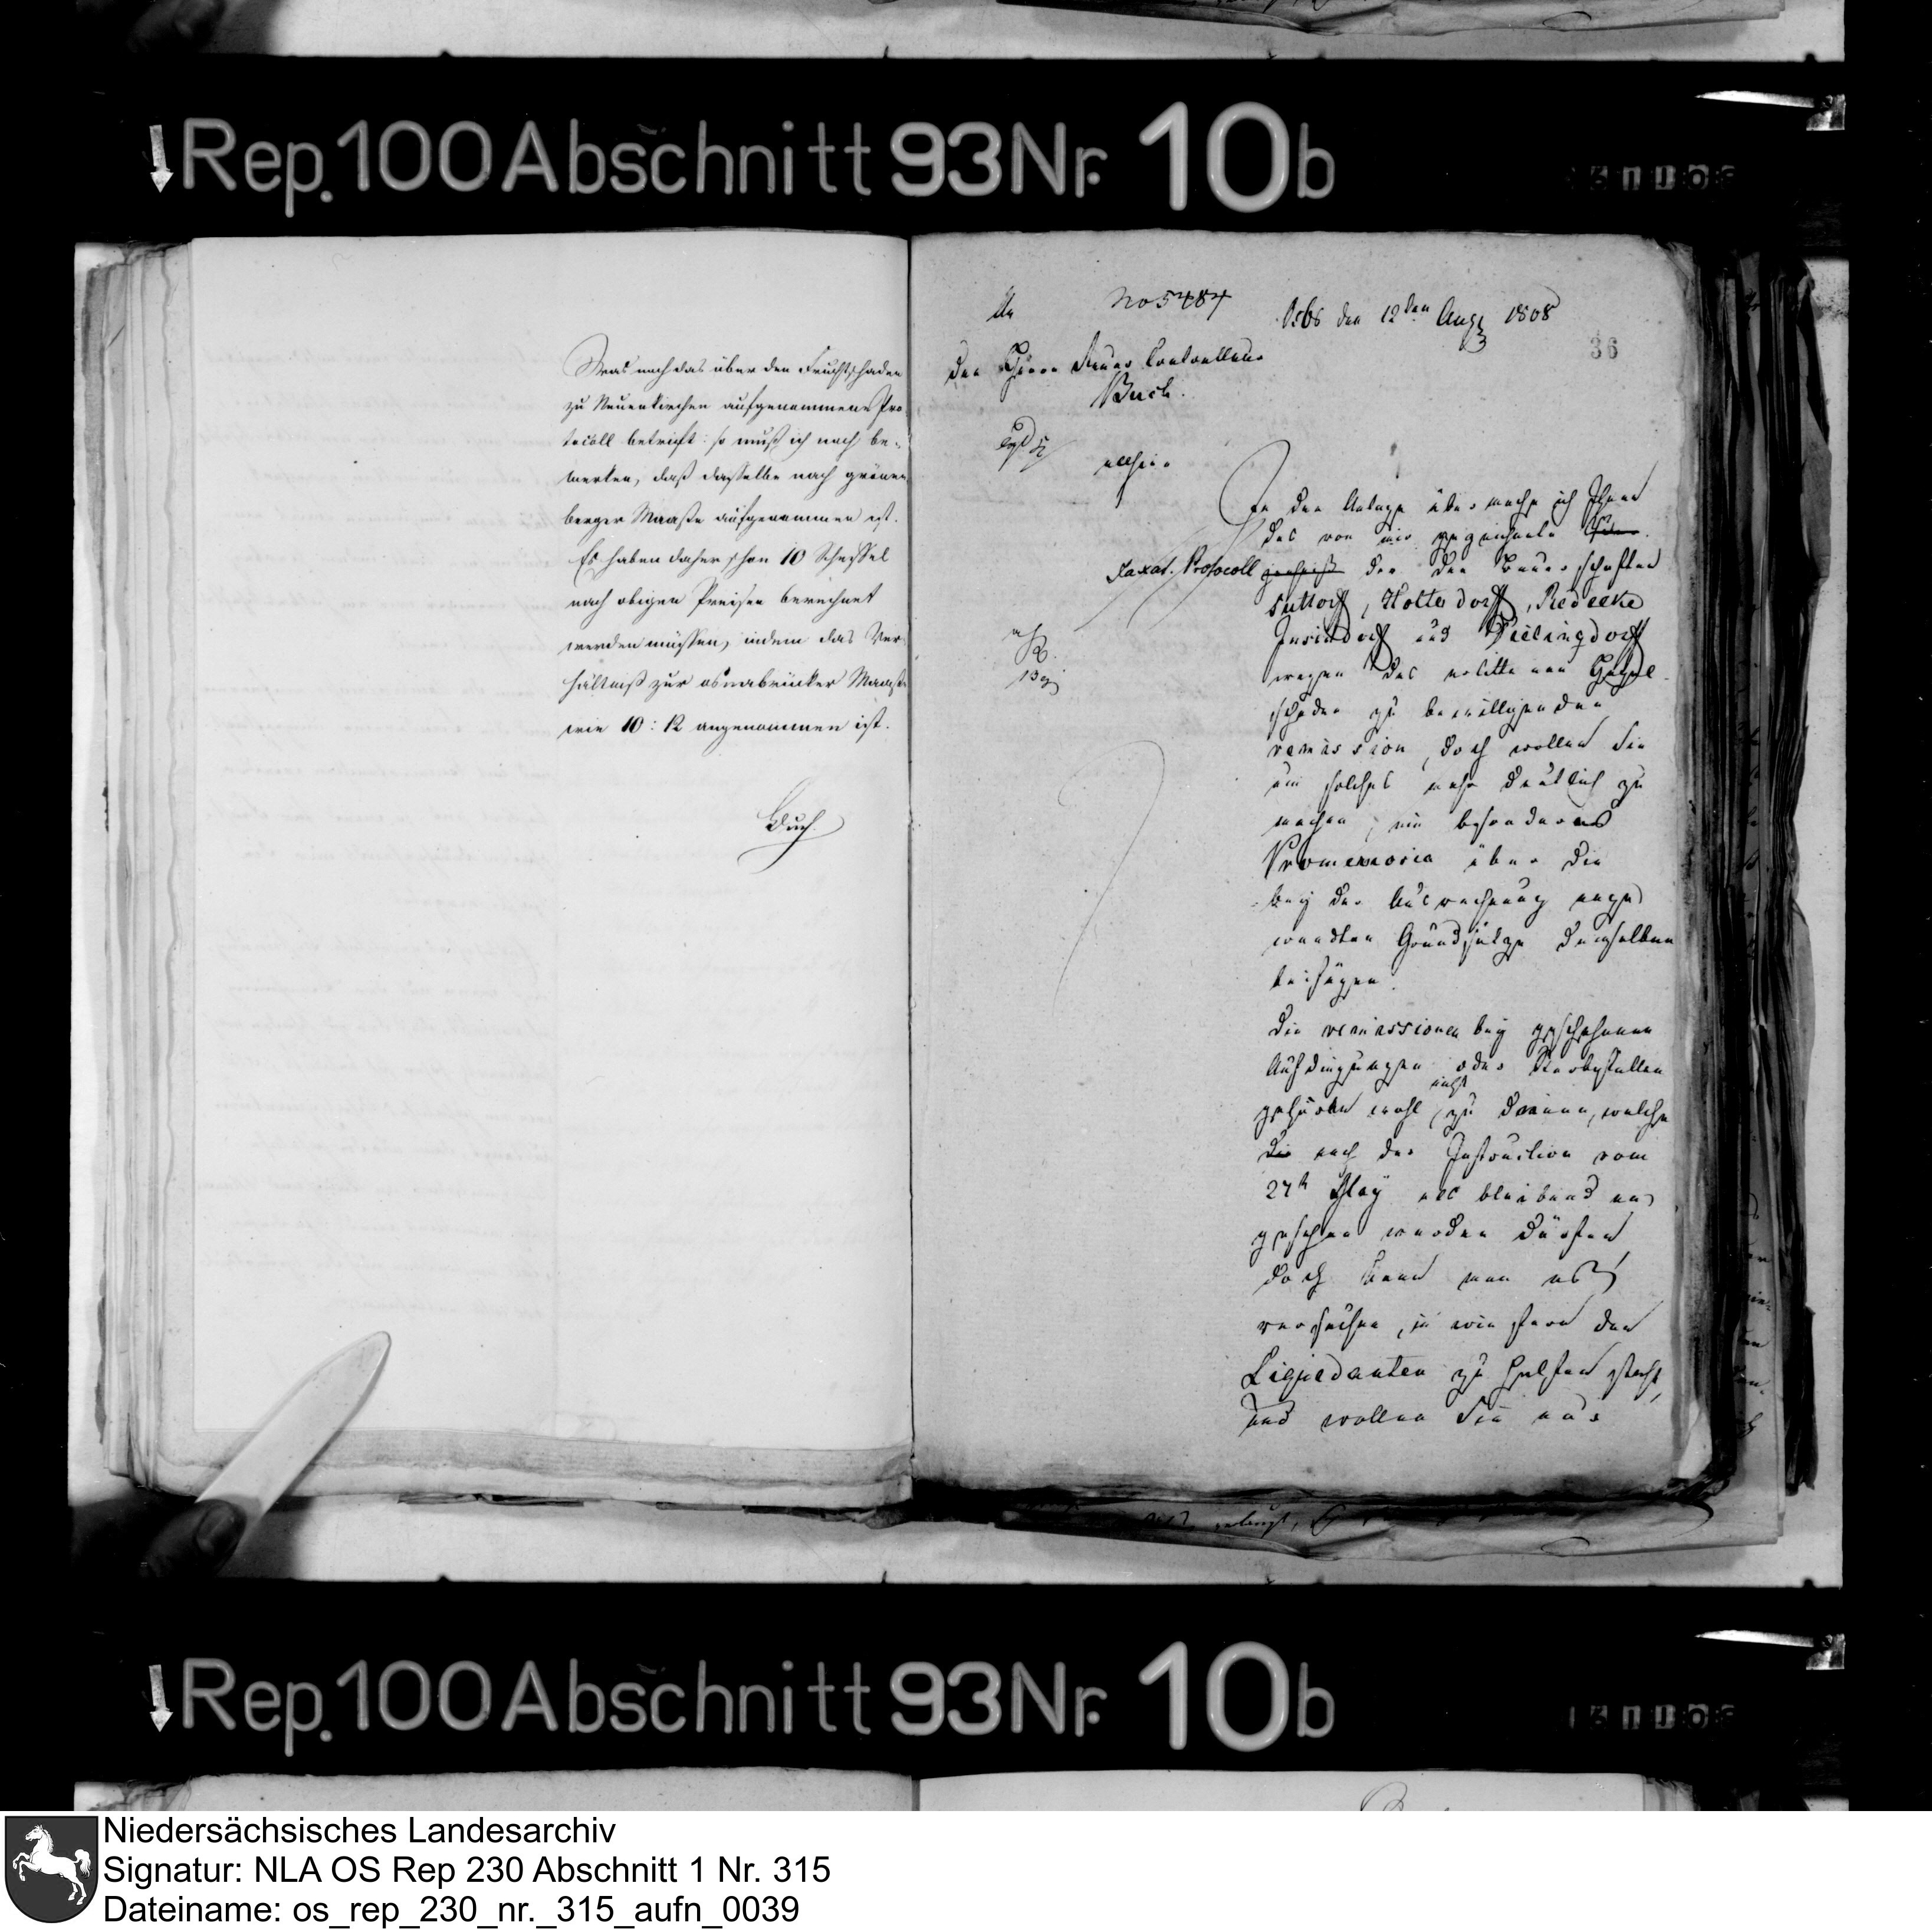 Rep. 100 Abschnitt 93 Nr. 10b
Was noch das über den Fruchtschaden
zu Neuenkirchen aufgenommene Pro-
tocoll betrift: so muß ich noch be-
merken, daß dasselbe nach grönen
berger Maaße aufgenommen ist.
Es haben daher schon 10 Scheffel
nach obigen Preisen berechnet
werden müssen, indem das Ver-
hältniß zur osnabrücker Maaße
wie 10 : 12 angenommen ist.
Buch.
An
No 5484
Osbs den 12ten Aug 1808
36
den Herrn Steuer Controlleur
Buch.
hier
In der Anlage übermache ich Ihnen
das von mir
Taxat. Protocoll der den Bauerschaften
Suttorf, Holterdorff, Redecke
Insindorf und Dielingdorff
wegen des erlittenen Hagel
schaden zu bewilligenden
remission, doch wollen Sie
um solches mehr deutlich zu
machen, ein besonderes
Promemoria über die
bey der Ausrechnung ange
wandten Grundsätze demselben
beifügen.
Die remissionen bey geschehenen
Auffdingungen oder Sterbefällen
gehören wohl nicht zu denen, welche
die nach der Instruction vom
27t May als bleibend an
gesehen werden dürfen
doch kann man es
versuchen, in wie fern den
Liquidanten zu helfen steht,
und wollen Sie aus
Rep. 100 Abschnitt 93 Nr. 10b
Niedersächsisches Landesarchiv
Signatur: NLA OS Rep 230 Abschnitt 1 Nr. 315
Dateiname: os_rep_230_nr._315_aufn_0039